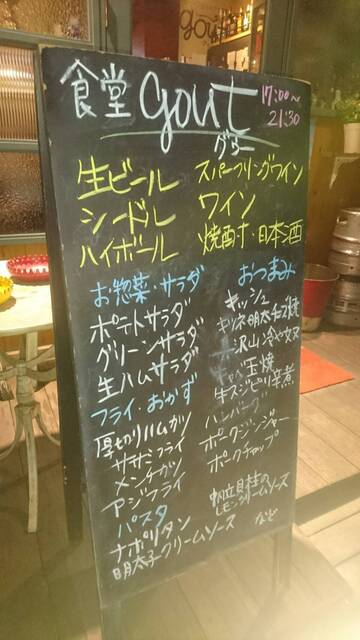 食堂 gout
グゥー
17:00〜
21:30
生ビール
シードル
ハイボール
スパークリングワイン
ワイン
焼酎・日本酒
お惣菜・サラダ
ポテトサラダ
グリーンサラダ
生ハムサラダ
フライ・おかず
厚切りハムカツ
ササミフライ
メンチカツ
アジフライ
パスタ
ナポリタン
明太子クリームソース
おつまみ
キッシュ
キツネ明太チーズ焼
沢山冷や奴
キャベ玉焼
牛スジピリ辛煮
ハンバーグ
ポークジンジャー
ポークチャップ
帆立貝柱の
レモンクリームソース
など
gout